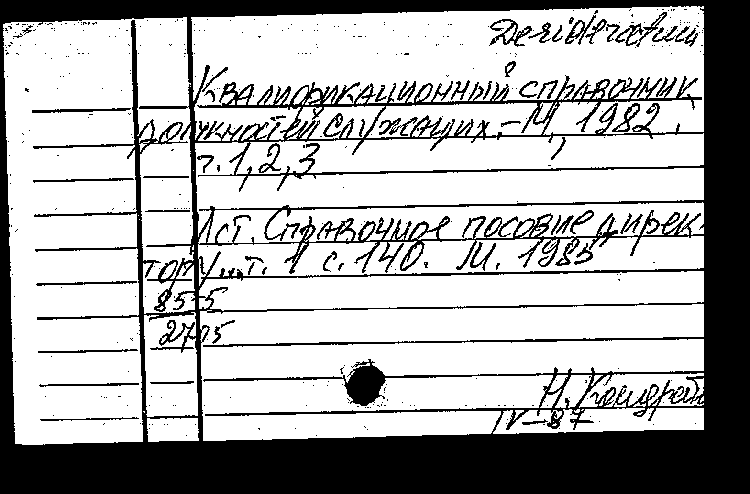 Desiderata
Квалификационный справочник
должностей служащих. – М., 1982.
т. 1, 2, 3
Ист. Справочное пособие дирек-
тору ... т. 1 с. 140. М. 1985
85-5
2705
Н. Кондрать
IV–87